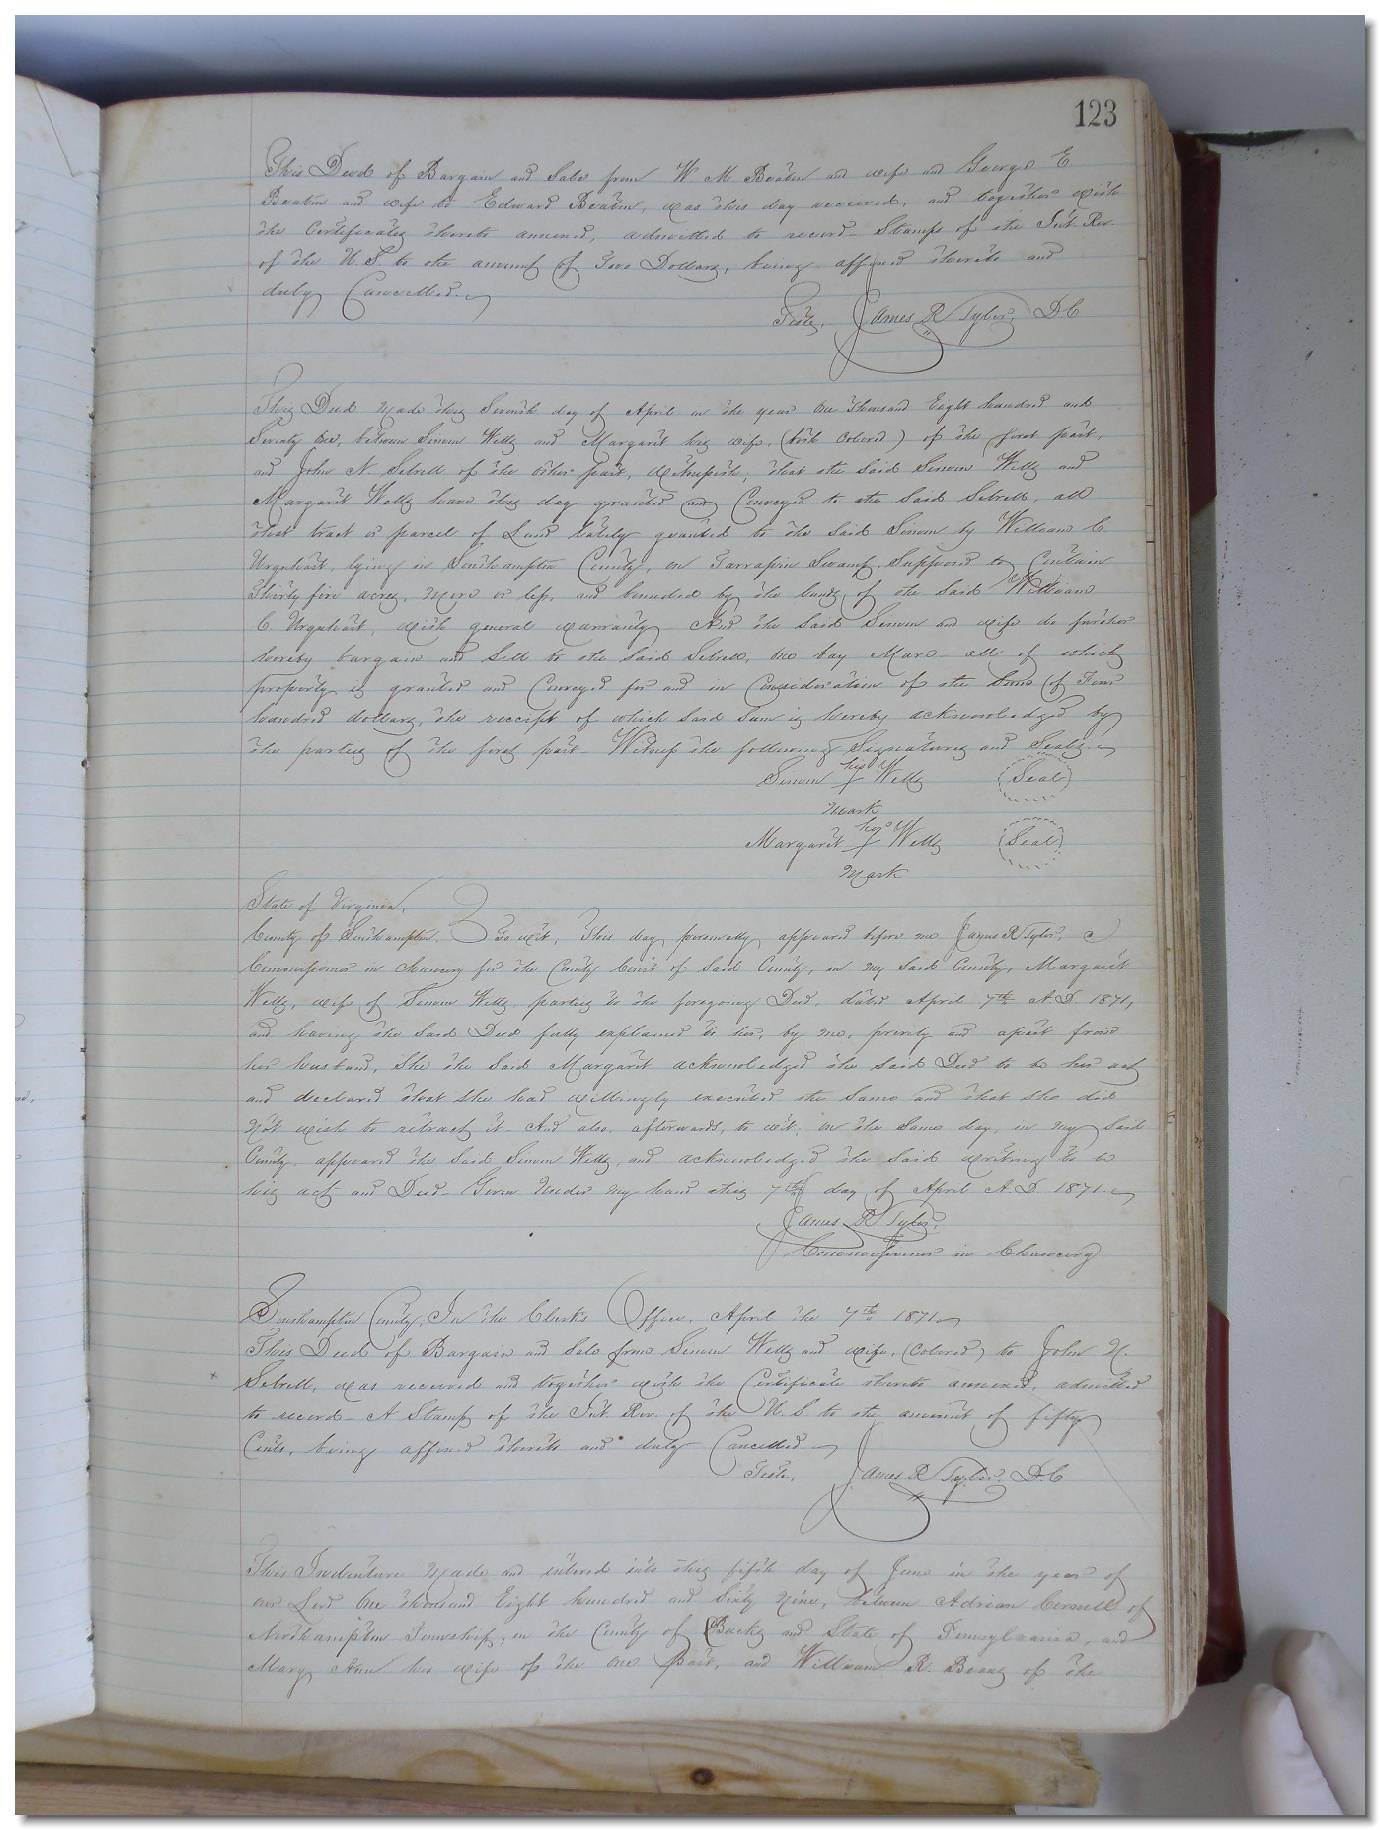 123
This Deed of Bargain and Sale from W M Beaton and wife and George E
Beaton and wife to Edward Beaton, was this day received, and together with
the Certificates thereto annexed, admitted to record - Stamps of the Int. Rev.
of the U. S. to the amount of Two Dollars, being affixed thereto and
duly Cancelled.
Teste, James R Tyler, D.C
This Deed Made this Seventh day of April in the year One Thousand Eight hundred and
Seventy One, between Simon Wells and Margaret his wife, (both Colored) of the first part,
and John N. Sebrell of the other part, Witnesseth; that the Said Simon Wells and
Margaret Wells have this day granted and Conveyed to the Said Sebrell, all
that tract or parcel of Land lately granted to the Said Simon by William C
Urquhart, lying in Southampton County, on Tarrapin Swamp, Supposed to Contain
Thirty five acres, More or less, and bounded by the lands of the Said William
C. Urquhart, with general warranty And the Said Simon and wife do further
hereby bargain and Sell to the Said Sebrell, One bay Mare all of which
property is granted and Conveyed for and in Consideration of the Sum of Four
hundred dollars, the receipt of which Said Sum is hereby acknowledged by
the parties of the first part - Witness the following Signatures and Seals.
his
Simon + Wells (Seal)
Mark
her
Margaret + Wells (Seal)
Mark
State of Virginia,
County of Southampton. To wit, This day personally appeared before me James R Tyler, a
Commissioner in Chancery for the County Court of Said County, in my Said County, Margaret
Wells, wife of Simon Wells, parties to the foregoing Deed, dated April 7th A.D 1871,
and having the Said Deed fully explained to her, by me, privily and apart from
her husband, She the Said Margaret acknowledged the Said Deed to be her act
and declared that She had willingly executed the Same and that She did
Not wish to retract it - And also, afterwards, to wit; on the Same day, in my Said
County, appeared the Said Simon Wells, and acknowledged the Said writing to be
his act and Deed - Given Under my hand this 7th day of April A.D 1871.
James R Tyler,
Commissioner in Chancery
Southampton County, In the Clerk's Office, April the 7th 1871.
This Deed of Bargain and Sale from Simon Wells and wife, (Colored) to John N.
Sebrell, was received and together with the Certificate thereto annexed, admitted
to record - A Stamp of the Int. Rev. of the U. S. to the amount of fifty
Cents, being affixed thereto and duly Cancelled
Teste, James R Tyler, D.C
This Indenture Made and entered into this fifth day of June in the year of
our Lord One thousand Eight hundred and Sixty Nine, between Adrian Cornell of
Northampton Township, in the County of Bucks and State of Pennsylvania, and
Mary Ann his wife of the One part, and William R. Beans of the